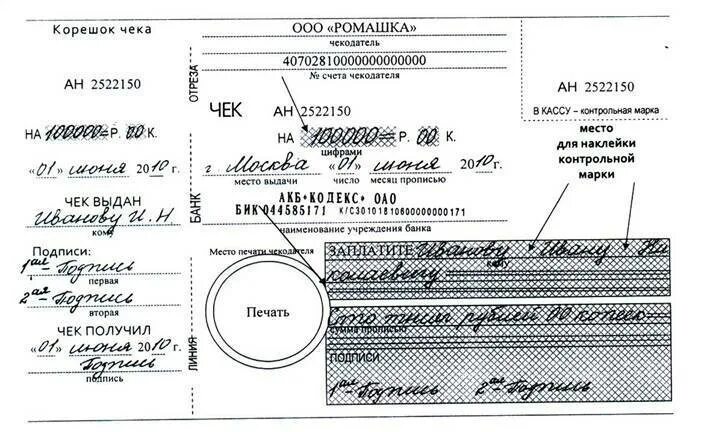 Корешок чека
АН 2522150
НА 100000= Р. 00 К.
«01» июня 2010 г.
ЧЕК ВЫДАН
Иванову И. Н
кому
Подписи:
1ая Подпись
первая
2ая Подпись
вторая
ЧЕК ПОЛУЧИЛ
«01» июня 2010 г.
Подпись
подпись
ОТРЕЗА
БАНК
ЛИНИЯ
ООО «РОМАШКА»
чекодатель
40702810000000000000
№ счета чекодателя
ЧЕК АН 2522150
НА 100000= Р. 00 К.
цифрами
г Москва «01» июня 2010 г.
место выдачи число месяц прописью
АКБ«КОДЕКС» ОАО
БИК 044585171 К/С30101810600000000171
наименование учреждения банка
Место печати чекодателя
Печать
ЗАПЛАТИТЕ Иванову Ивану Ни
кому
колаевичу
Сто тысяч рублей 00 копеек
сумма прописью
ПОДПИСИ
1ая Подпись 2ая Подпись
АН 2522150
В КАССУ – контрольная марка
место
для наклейки
контрольной
марки